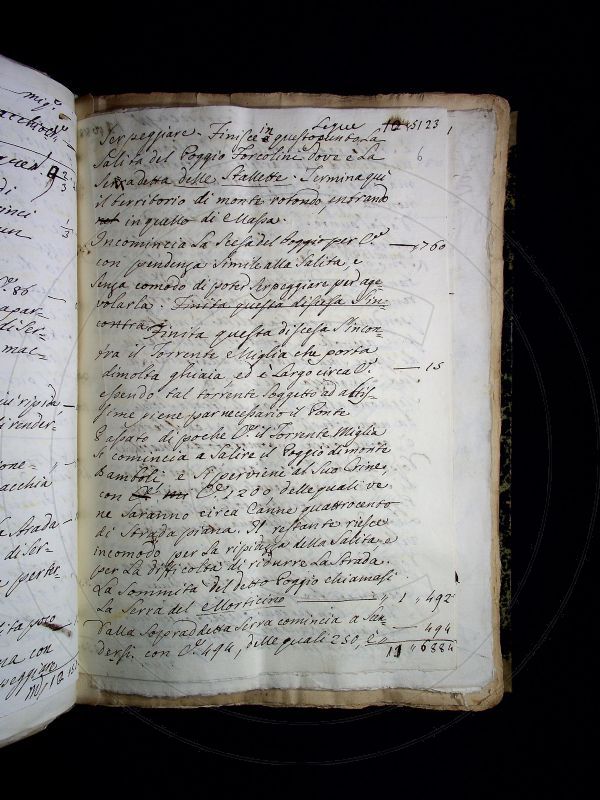 mig.e
acchio
2/3
di
vinci
1/3
un
C.e 86
apar-
di ser-
mac-
render-
one-
acchia
Strada
di Ser-
perter-
ita poco
na con
peggiare
Segue 10 " 5123
Serpeggiare. Finisce in questo punto la
Salita del Poggio Forcoline dove è la
Serra detta delle Stallette. Termina qui
il territorio di monte rotondo, entrando
in quello di Massa.
Incomincia la Scesa del Poggio per C.e 760
con pendenza simile alla Salita, e
senza comodo di poter Serpeggiare per age-
volarla. Finita questa discesa s'in-
contra
Finita questa discesa s'incon-
tra il Torrente Miglia che porta
dimolta ghiaia, ed è largo circa C.e 15
essendo tal torrente soggetto ad altis-
sime piene par necessario il Ponte
Passato di poche C.e il Torrente Miglia
si comincia a Salire il Poggio di monte
Bamboli, e si perviene al Suo Crine,
con C.e 1200 delle quali ve
ne saranno circa Canne quattrocento
di Strada piana. Il restante riesce
incomodo per la ripidezza della Salita, e
per la difficoltà di ridurre la Strada.
La Sommità del detto Poggio chiamasi
La Serra del Morticino " 1 " 492
Dalla Sopraddetta Serra comincia a Scen
dersi con C.e 494, delle quali 250, 494
11 " 6884